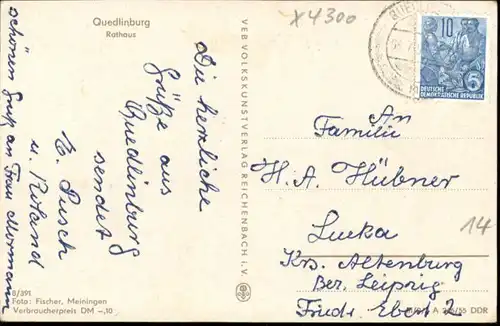 Quedlinburg
Rathaus
X4300
Die herzliche
Grüße aus
Quedlinburg
sendet
E. Pusch
u. Roland
schönen Gruß an Frau
VEB VOLKSKUNSTVERLAG REICHENBACH i. V.
10
5
DEUTSCHE
DEMOKRATISCHE REPUBLIK
An
Familie
H. A. Hübner
Lucka
Krs. Altenburg
Bez. Leipzig
Friedr. Ebert 2
14
8/391
Foto: Fischer, Meiningen
Verbraucherpreis DM –,10